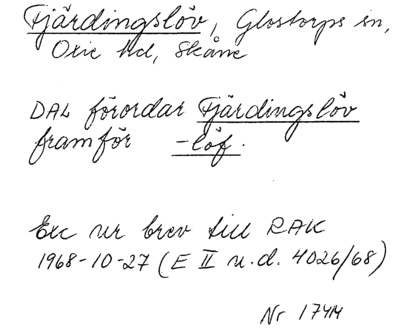 Fjärdingslöv, Glostorps sn,
Oxie hd, Skåne
DAL förordar Fjärdingslöv
framför -löf.
Exc ur brev till RAK
1968-10-27 (E II u.d. 4026/68)
Nr 174M